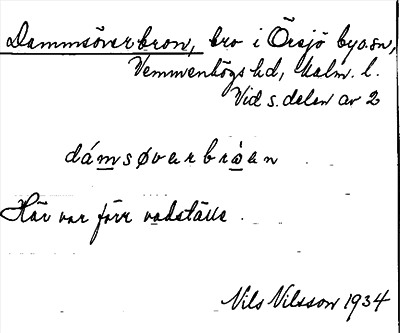 Dammsöverbron, bro i Örsjö by o. sn,
Vemmenhögs hd, Malm. l.
Vid s. delen av 2
dámsøvarbroen
Här var förr vadställe.
Nils Nilsson 1934